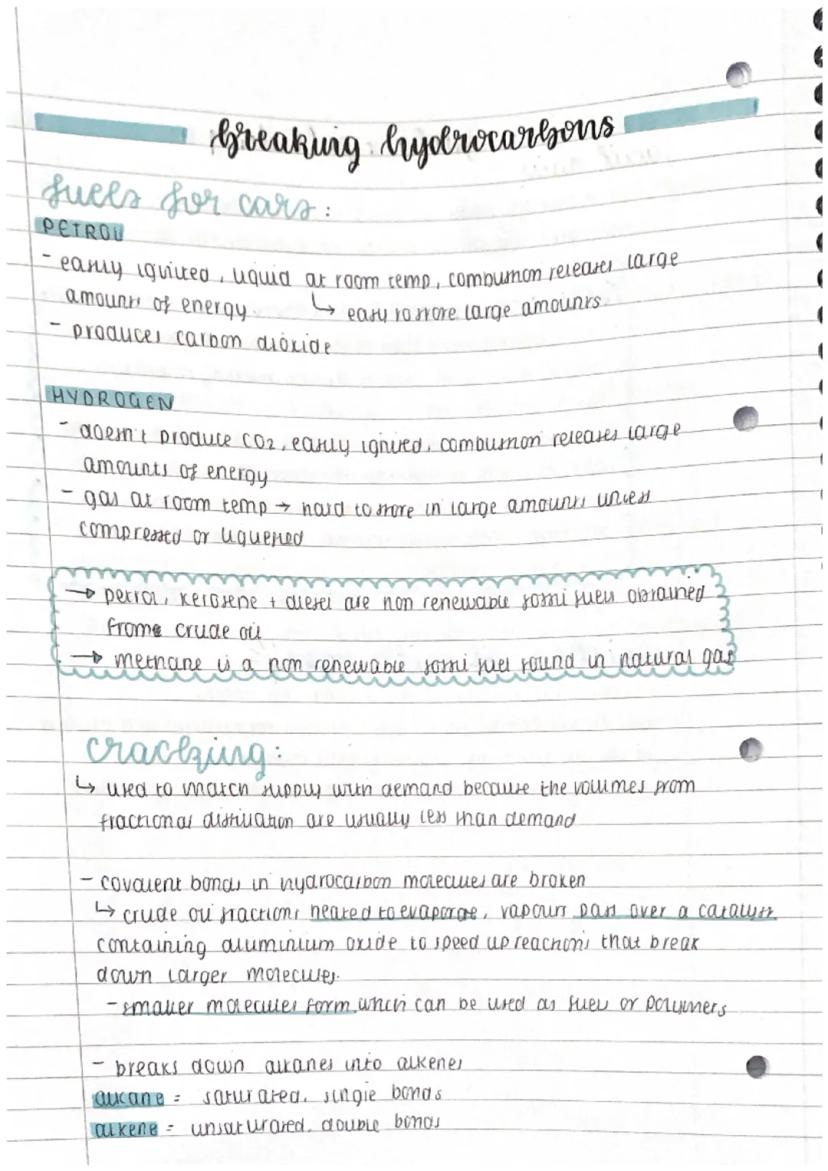 breaking hydrocarbons
fuels for cars:
PETROL
- easily ignited, liquid at room temp, combustion releases large
amounts of energy ↳ easy to store large amounts
- produces carbon dioxide
HYDROGEN
- doesn't produce CO2, easily ignited, combustion releases large
amounts of energy
- gas at room temp → hard to store in large amounts unless
compressed or liquefied
→ petrol, kerosene + diesel are non renewable fossil fuels obtained
from crude oil
→ methane is a non renewable fossil fuel found in natural gas
cracking:
↳ used to match supply with demand because the volumes from
fractional distillation are usually less than demand
- covalent bonds in hydrocarbon molecules are broken
↳ crude oil fractions heated to evaporate, vapours pass over a catalyst
containing aluminium oxide to speed up reactions that break
down larger molecules.
- smaller molecules form which can be used as fuels or polymers
- breaks down alkanes into alkenes
alkane = saturated, single bonds
alkene = unsaturated, double bonds